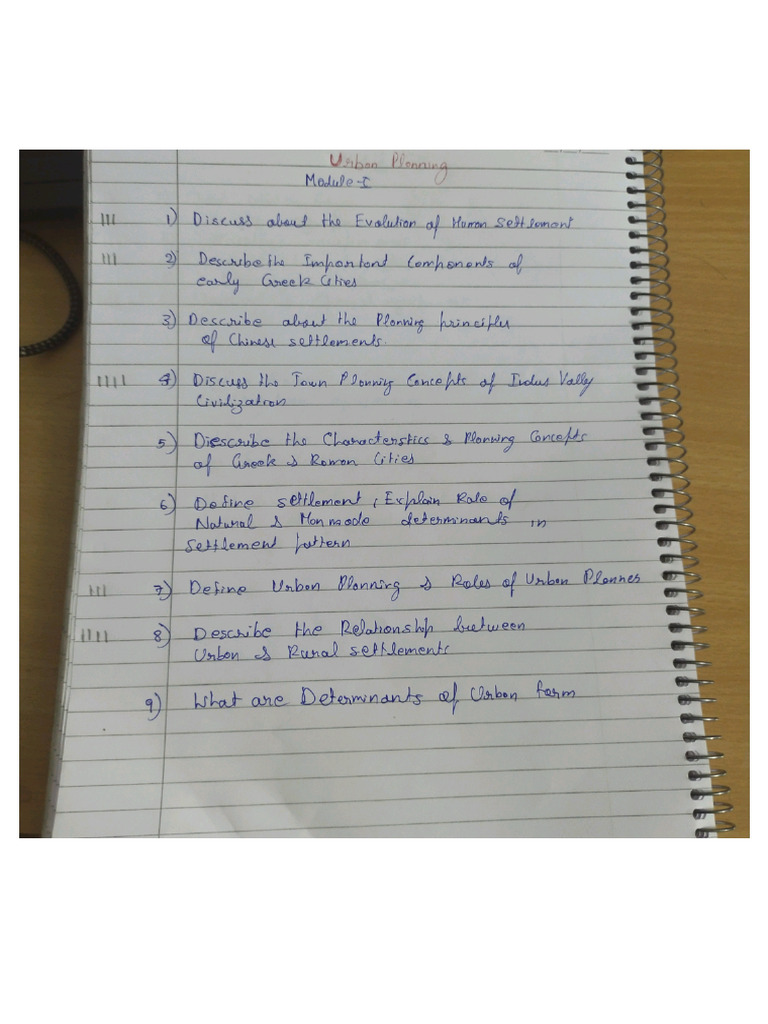 Urban Planning
Module-I
1) Discuss about the Evolution of Human Settlement
2) Describe the Important Components of
early Greek Cities
3) Describe about the Planning principles
of Chinese settlements.
4) Discuss the Town Planning Concepts of Indus Vally
Civilization
5) Discribe the Characterstics & Planning Concepts
of Greek & Roman Cities
6) Define settlement, Explain Role of
Natural & Manmade determinants in
settlement pattern
7) Define Urban Planning & Roles of Urban Planner
8) Describe the Relationship between
Urban & Rural settlements
9) What are Determinants of Urban form